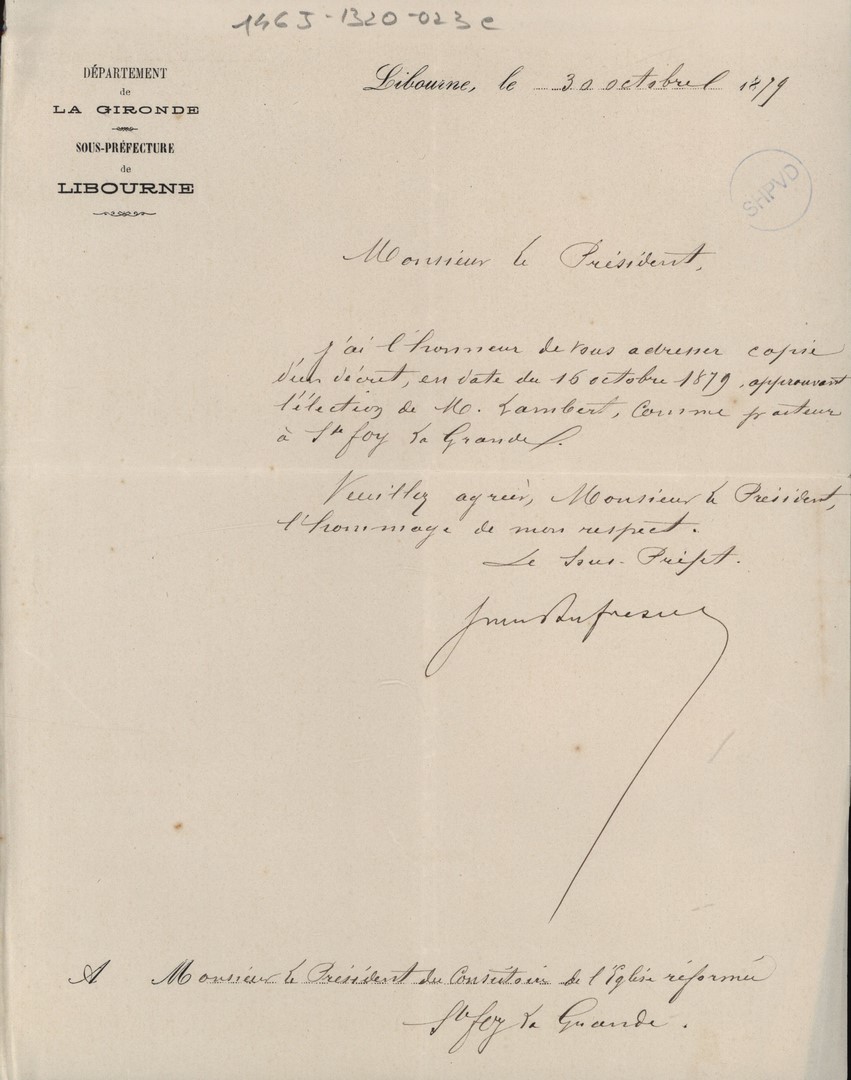 1463-1320-023c
DÉPARTEMENT
de
LA GIRONDE
SOUS-PRÉFECTURE
de
LIBOURNE
Libourne, le 30 octobre 1879
SHPVD
Monsieur le Président,
J'ai l'honneur de vous adresser copie
d'un décret, en date du 16 octobre 1879, approuvant
l'élection de M. Lambert, comme pasteur
à Ste foy la Grande.
Veuillez agréer, Monsieur le Président,
l'hommage de mon respect.
Le Sous-Préfet.
A Monsieur le Président du Consistoire de l'Eglise réformée
Ste foy la Grande.